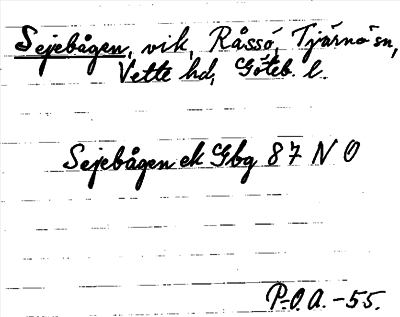 Sejebågen, vik, Råssö, Tjärnö sn,
Vette hd, Göteb. l.
Sejebågen ek Gbg 87 N O
P-O.A. -55.